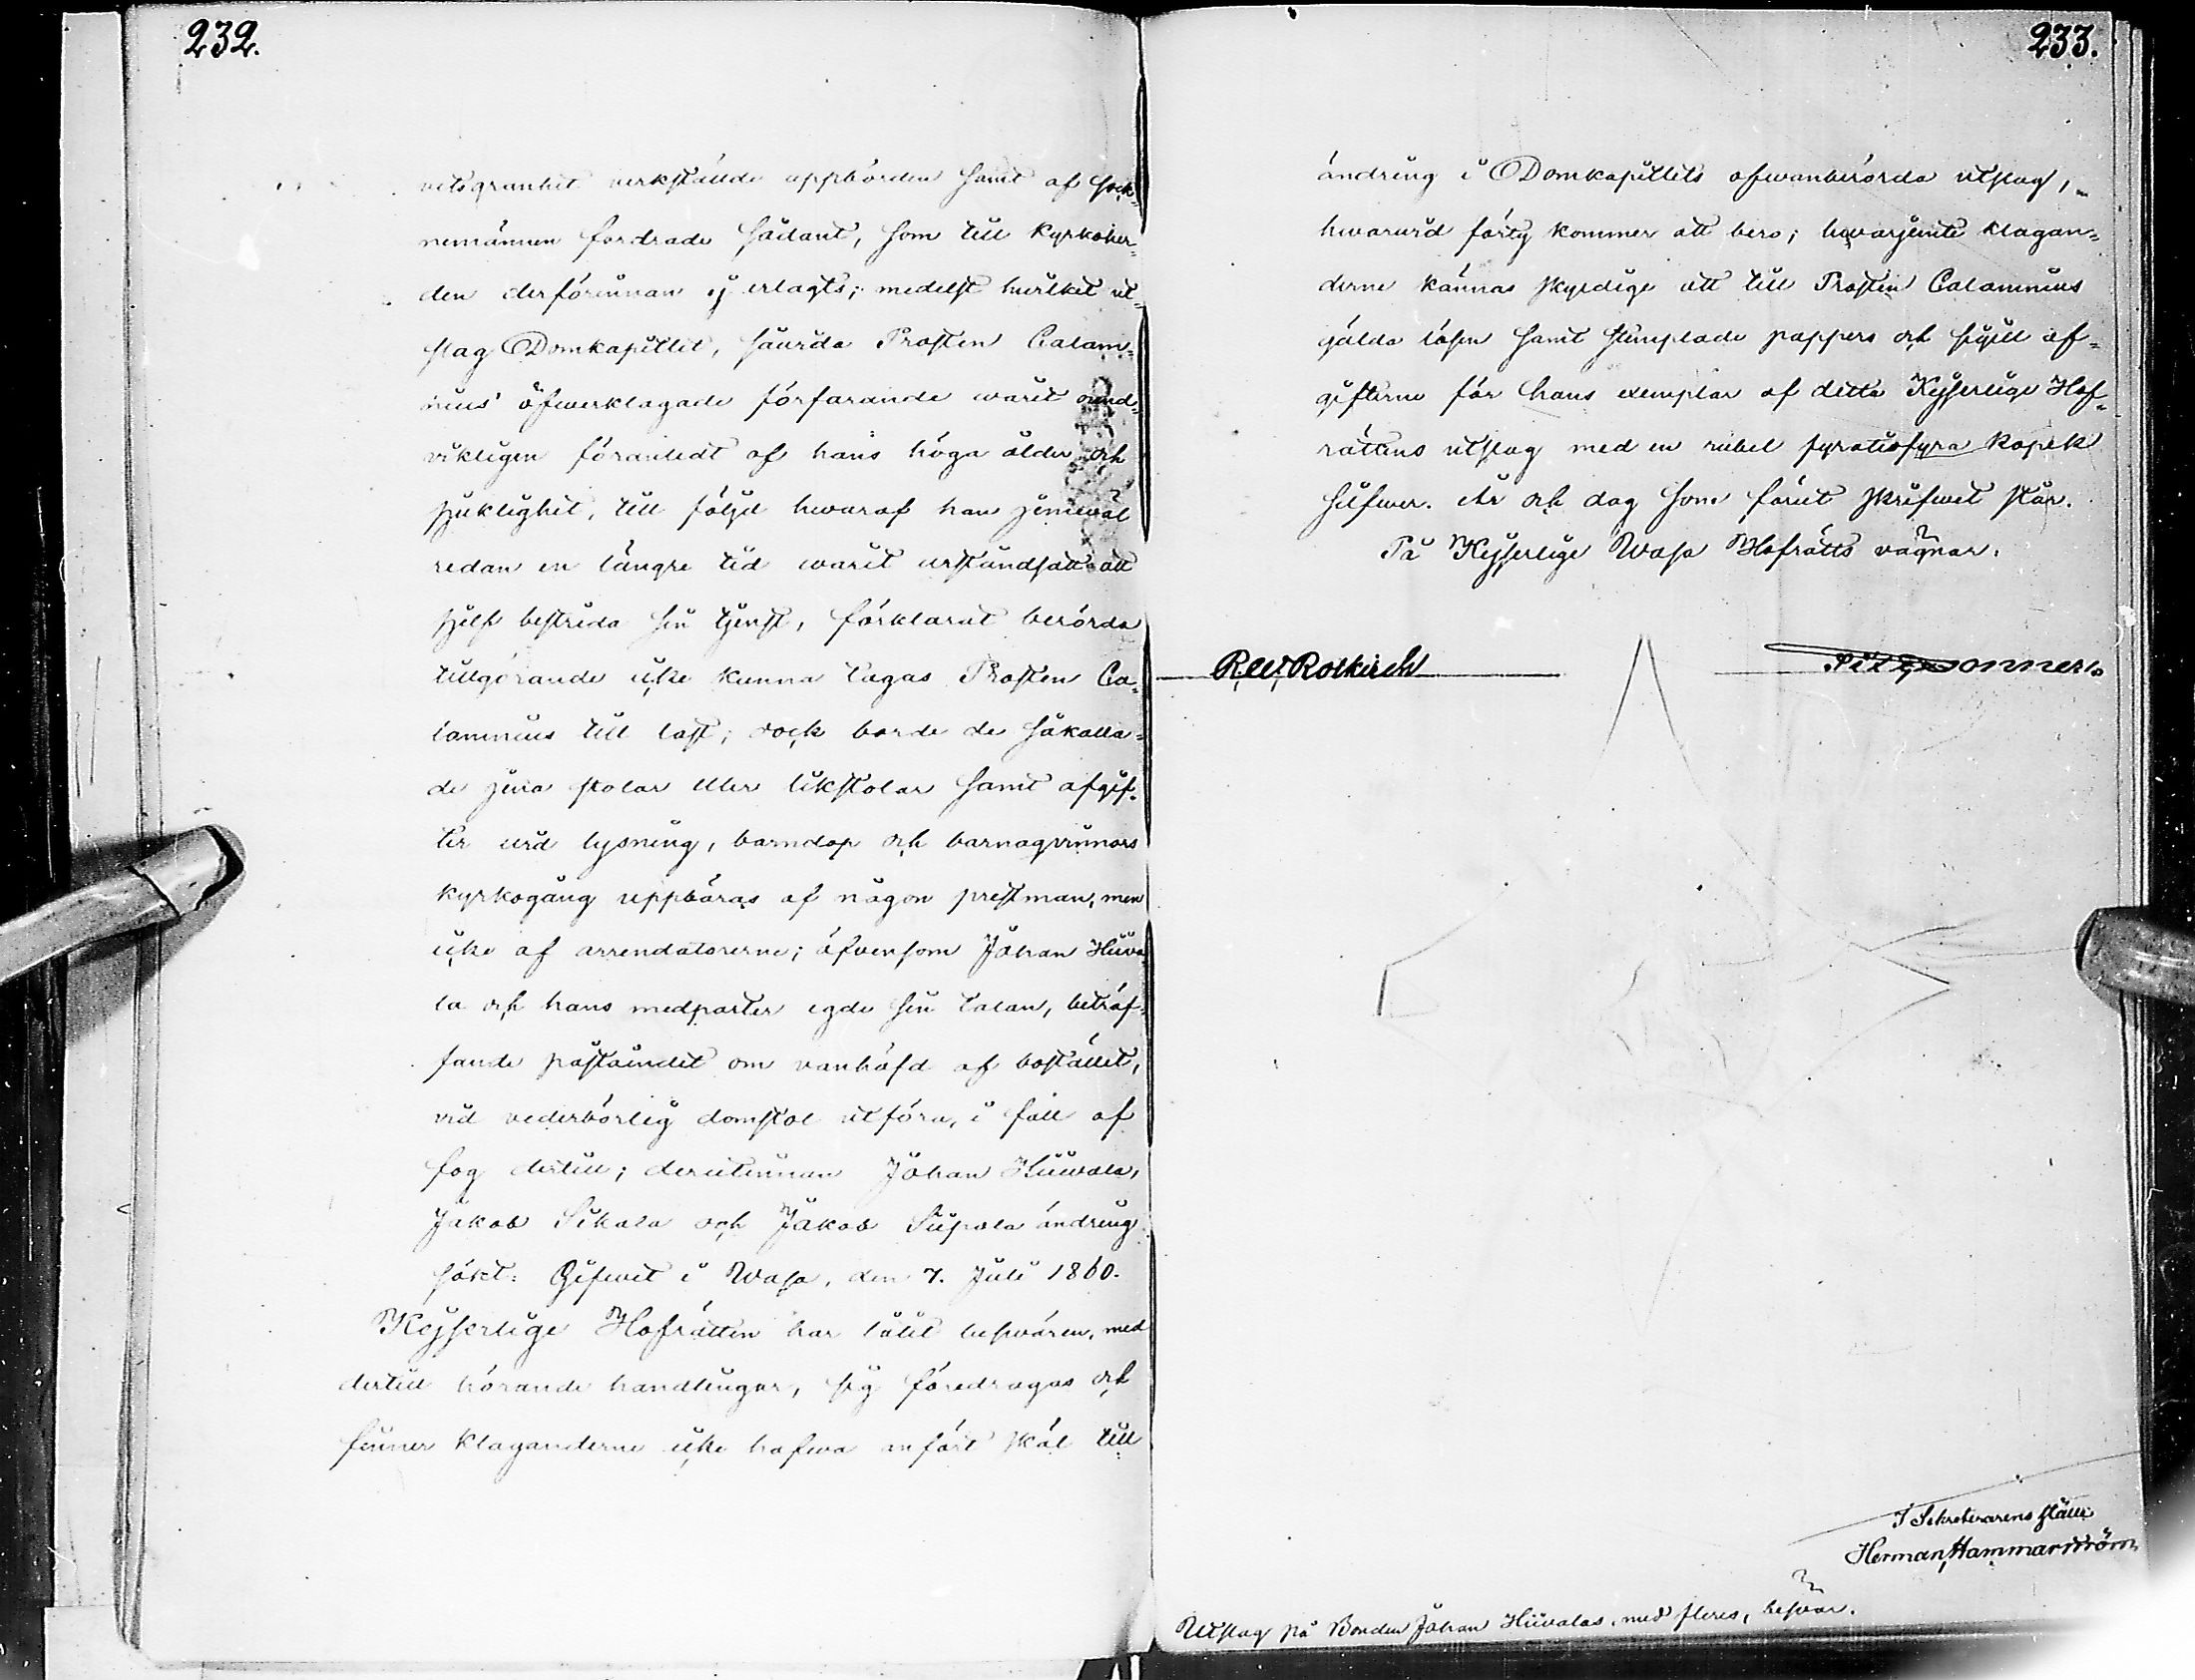 232.
vetsgranhet verkstälde uppbörden samt af sock¬
nemännen fordrade sådant, som till Kyrkoher¬
den derförinnan ej erlagts; medelst hvilket ut¬
slag Domkapitlet, såvida Prosten Calam¬
nius' öfwerklagade förfarande warit ound¬
vikligen föranledt af hans höga ålder och
sjuklighet, till följd hwaraf han jemwäl
redan en längre tid warit urståndsatt att
sjelf bestrida sin tjenst, förklarat berörda
tillgörande icke kunna tagas Prosten Ca¬
lamnius till last; dock borde de såkalla¬
de jura stolar eller likstolar samt afgif¬
ter vid lysning, barndop och barnaqvinnors
kyrkogång uppbäras af någon prestman, men
icke af arrendatorerne; äfvensom Johan Hiiva¬
la och hans medparter egde sin talan, beträf¬
fande påståendet om vanhäfd af bostället,
vid vederbörlig domstol utföra, i fall af
fog dertill; derutinnan Johan Hiiwala,
Jakob Sikala och Jakob Siipola ändring
sökt: Gifwet i Wasa, den 7. Juli 1860.
Kejserlige Hofrätten har låtit beswären, med
dertill hörande handlingar, sig föredragas och
finner klaganderne icke hafwa anfört skäl till
233.
ändring i Domkapitlets ofwanberörda utslag,
hwarwid förty kommer att bero; hwarjemte klagan¬
derne kännas skyldige att till Prosten Calamnius
gälda lösen samt stemplade pappers och sigill af¬
gifterne för hans exemplar af detta Kejserlige Hof¬
rättens utslag med en rubel fyratiofyra kopek
silfwer. År och dag som förut skrifwet står.
På Kejserlige Wasa Hofrätts vägnar.
Rotkirch
I Sekreterarens ställe
Herman Hammarström
Utslag på Bonden Johan Hiivalas, med fleres, besvär.